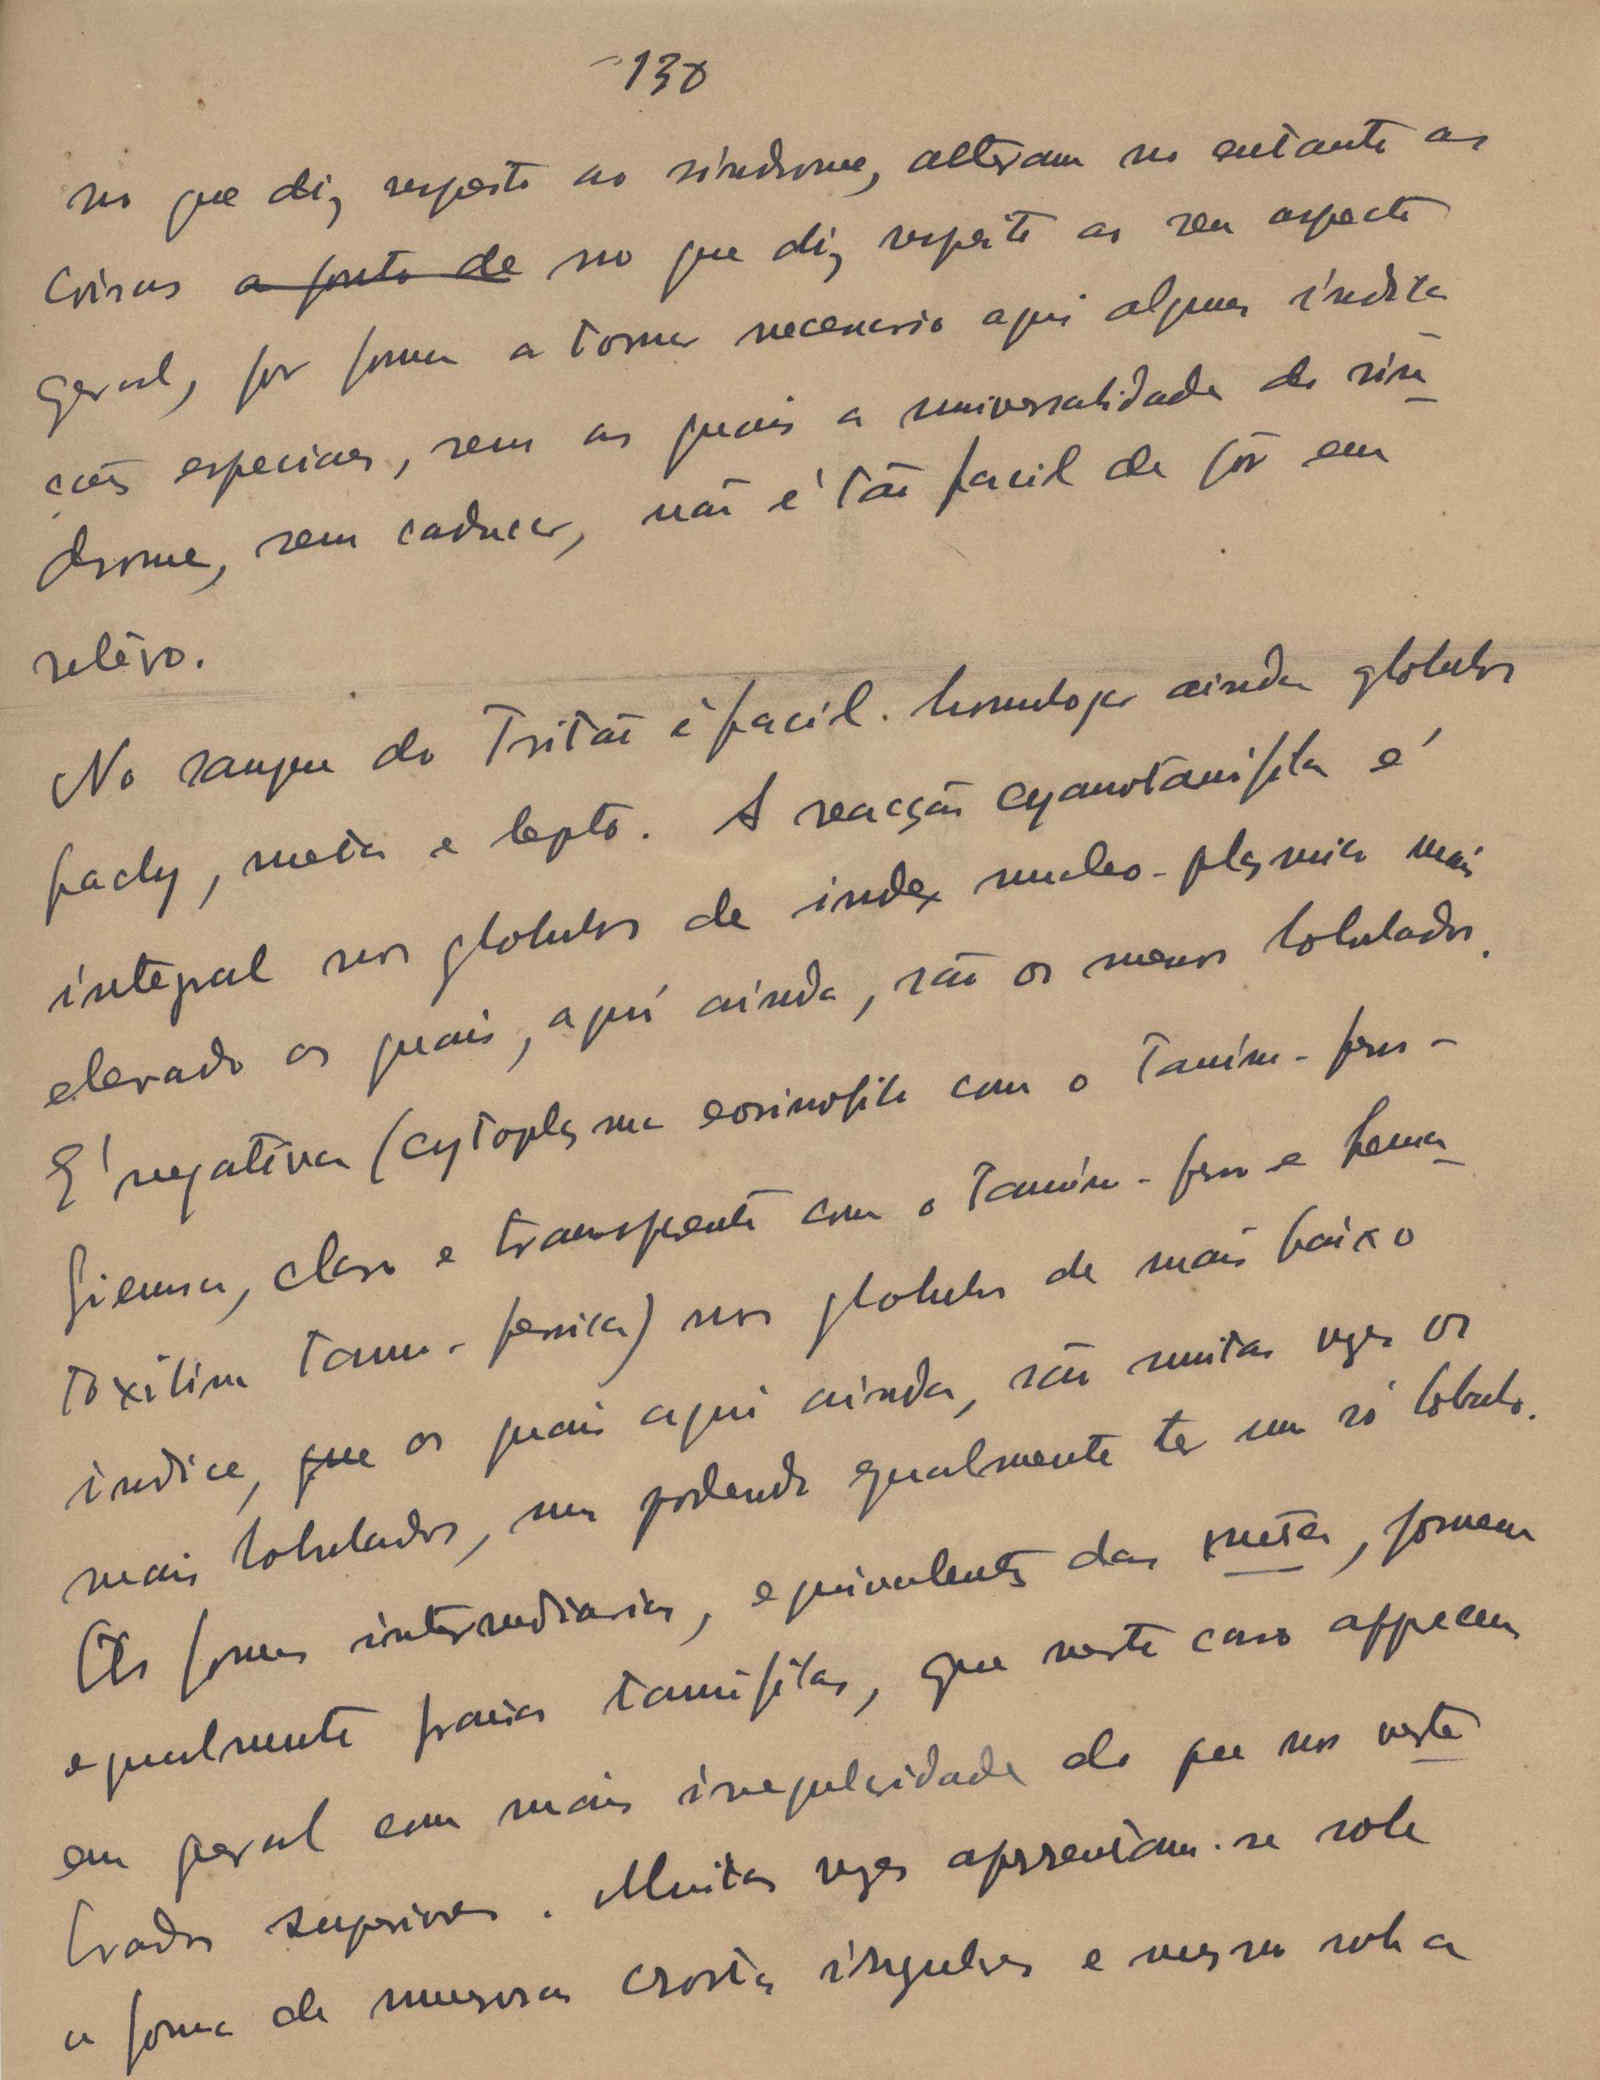 130
no que diz respeito ao síndrome, alteram no entanto as
coisas a ponto de no que diz respeito ao seu aspecto
geral, por forma a tornar necessario aqui algumas indica-
ções especiaes, sem as quais a universalidade do sin-
drome, sem caducar, não é tão facil de pôr em
relêvo.
No sangue do Tritão é facil homologar ainda globulos
pachy, meta e lepto. A reacção cyanotanifila é
integral nos globulos de index nucleo-plasmico mais
elevado os quais, aquí ainda, são os menos lobulados.
E' negativa (cytoplasma eosinofilo com o Tanino-ferro-
giemsa, claro e transparente com o Tanino-ferro e hema-
toxilina tanno-ferrica) nos globulos de mais baixo
indice, que os quais aqui ainda, são muitas vezes os
mais lobulados, mas podendo egualmente ter um só lobulo.
As formas intermediarias, equivalentes das meta, fornecem
egualmente franjas tanifilas, que neste caso apparecem
em geral com mais irregularidade do que nos verte-
brados superiores. Muitas vezes apresentam-se sob
a forma de numerosas crostas irregulares e mesmo sob a